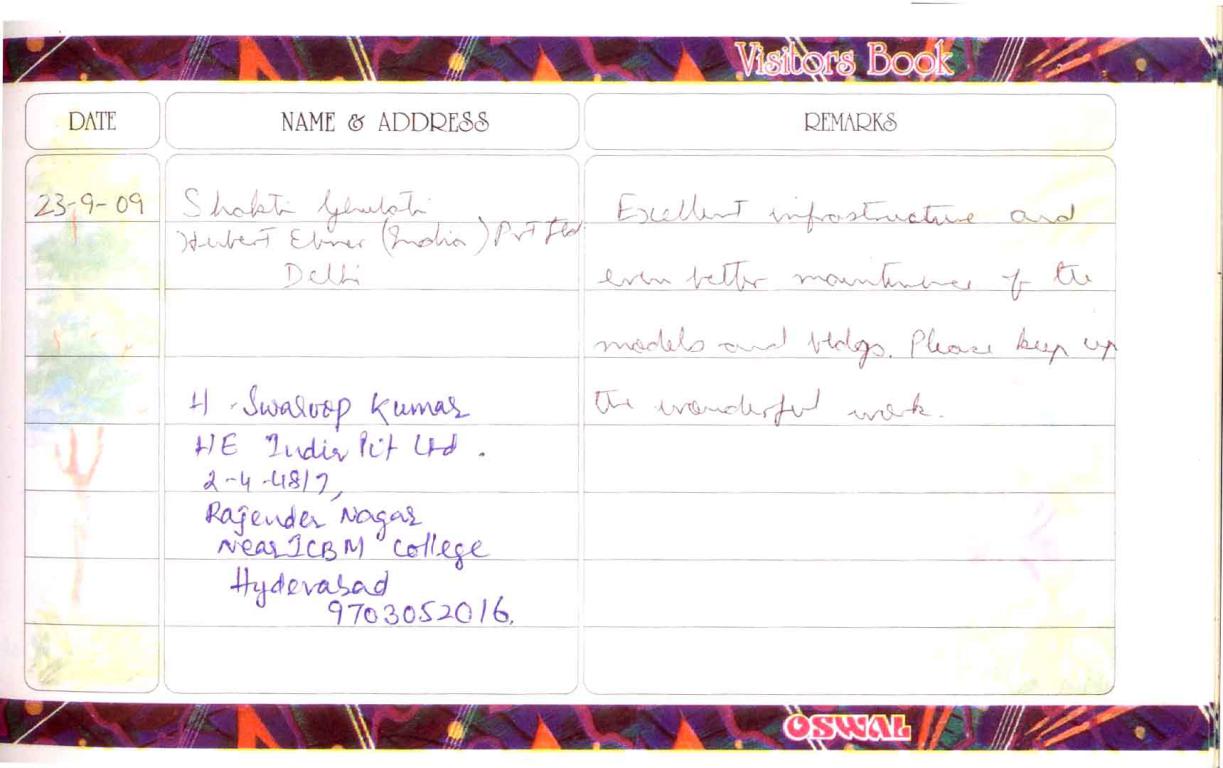 Visitors Book
DATE
NAME & ADDRESS
REMARKS
23-9-09
Shakti Ghulati
Hubert Ebner (India) Pvt Ltd
Delhi
Excellent infrastructure and
even better maintenance of the
models and bldgs. Please keep up
the wonderful work.
H. Swaroop Kumar
HE India Pvt Ltd.
2-4-48/7,
Rajender Nagar
Near ICBM College
Hyderabad
9703052016.
OSWAL